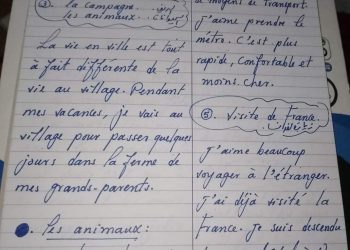 ③. la campagne..
les animaux...
La vie en ville est tout
à fait différente de la
vie au village. Pendant
mes vacances, je vais au
village pour passer quelques
jours dans la ferme de
mes grands-parents.
les animaux:
moyens de transport.
J'aime prendre le
métro. C'est plus
rapide, confortable et
moins cher.
⑤. Visite de France.
J'aime beaucoup
voyager à l'étranger.
J'ai déjà visité la
France. Je suis descendu